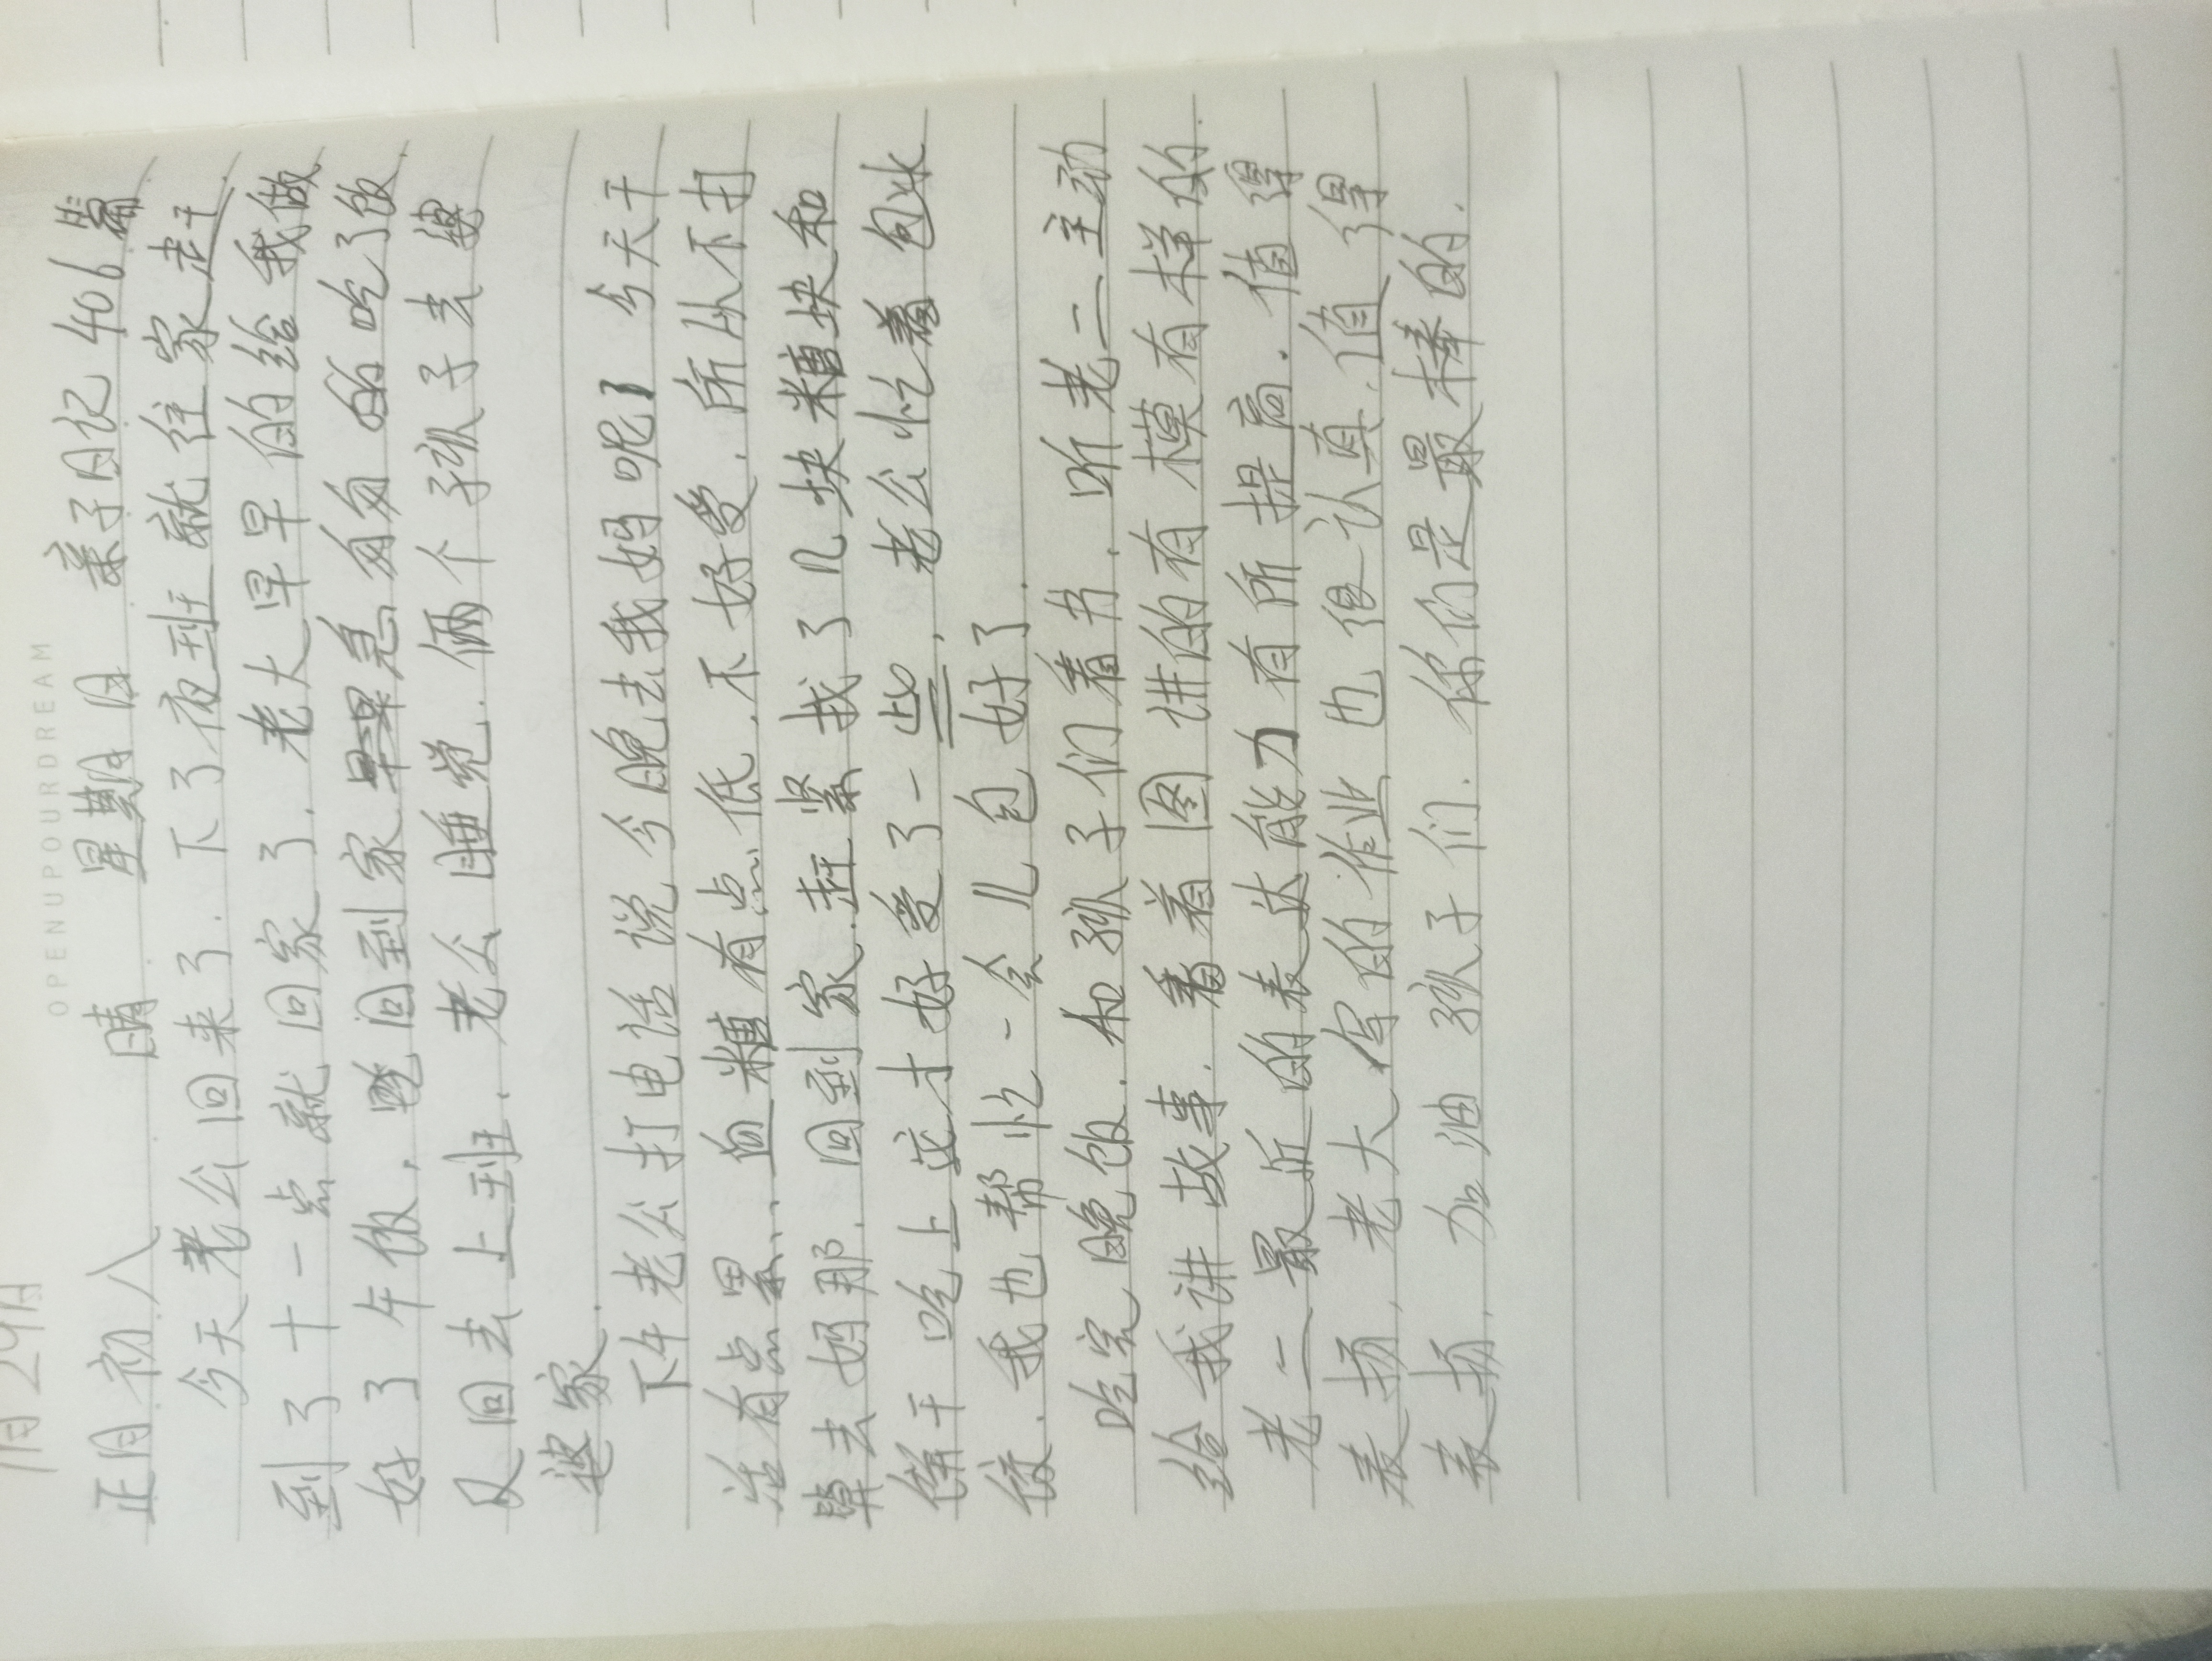 OPENUPOURDREAM
1月29日
正月初八 晴 星期日 亲子日记406篇
今天老公回来了.下了夜班就往家赶
到了十一点就回家了.老大早早的给我做
好了午饭,回到家急匆匆的吃了饭
又回去上班.老公睡觉.俩个孩子去
婆家.
下午老公打电话说今晚去我妈呢!今天干
活有点累..血糖有点低.不好受.所以不打
算去妈那.回到家.赶紧找了几块糖块和
饼干吃上这才好受了一些,老公忙着包水
饺.我也帮忙一会儿包好了.
吃完晚饭.和孩子们看书.听老二主动
给我讲故事.看着图讲的有模有样的.
老二最近的表达能力有所提高.值得
表扬,老大写的作业也很认真.值得
表扬.加油孩子们.你们是最棒的.